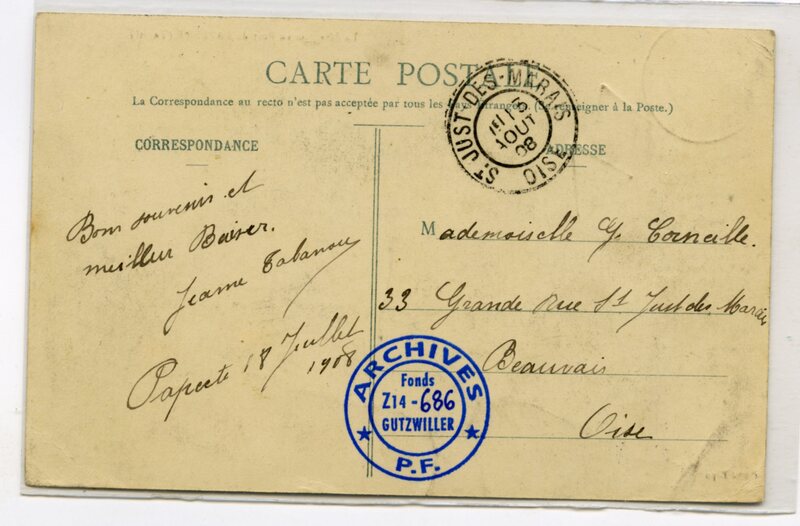 CARTE POSTALE
La Correspondance au recto n'est pas acceptée par tous les pays étrangers (Se renseigner à la Poste.)
CORRESPONDANCE
ADRESSE
ST. JUST-DES-MARAIS
OISE
AOUT
08
Bon souvenir et
meilleur Baiser.
Jeanne
Papeete 18 Juillet
1908
Mademoiselle G. Corneille.
33 Grande rue St Just des Marais
Beauvais
Oise
ARCHIVES
Fonds
Z14-686
GUTZWILLER
P.F.